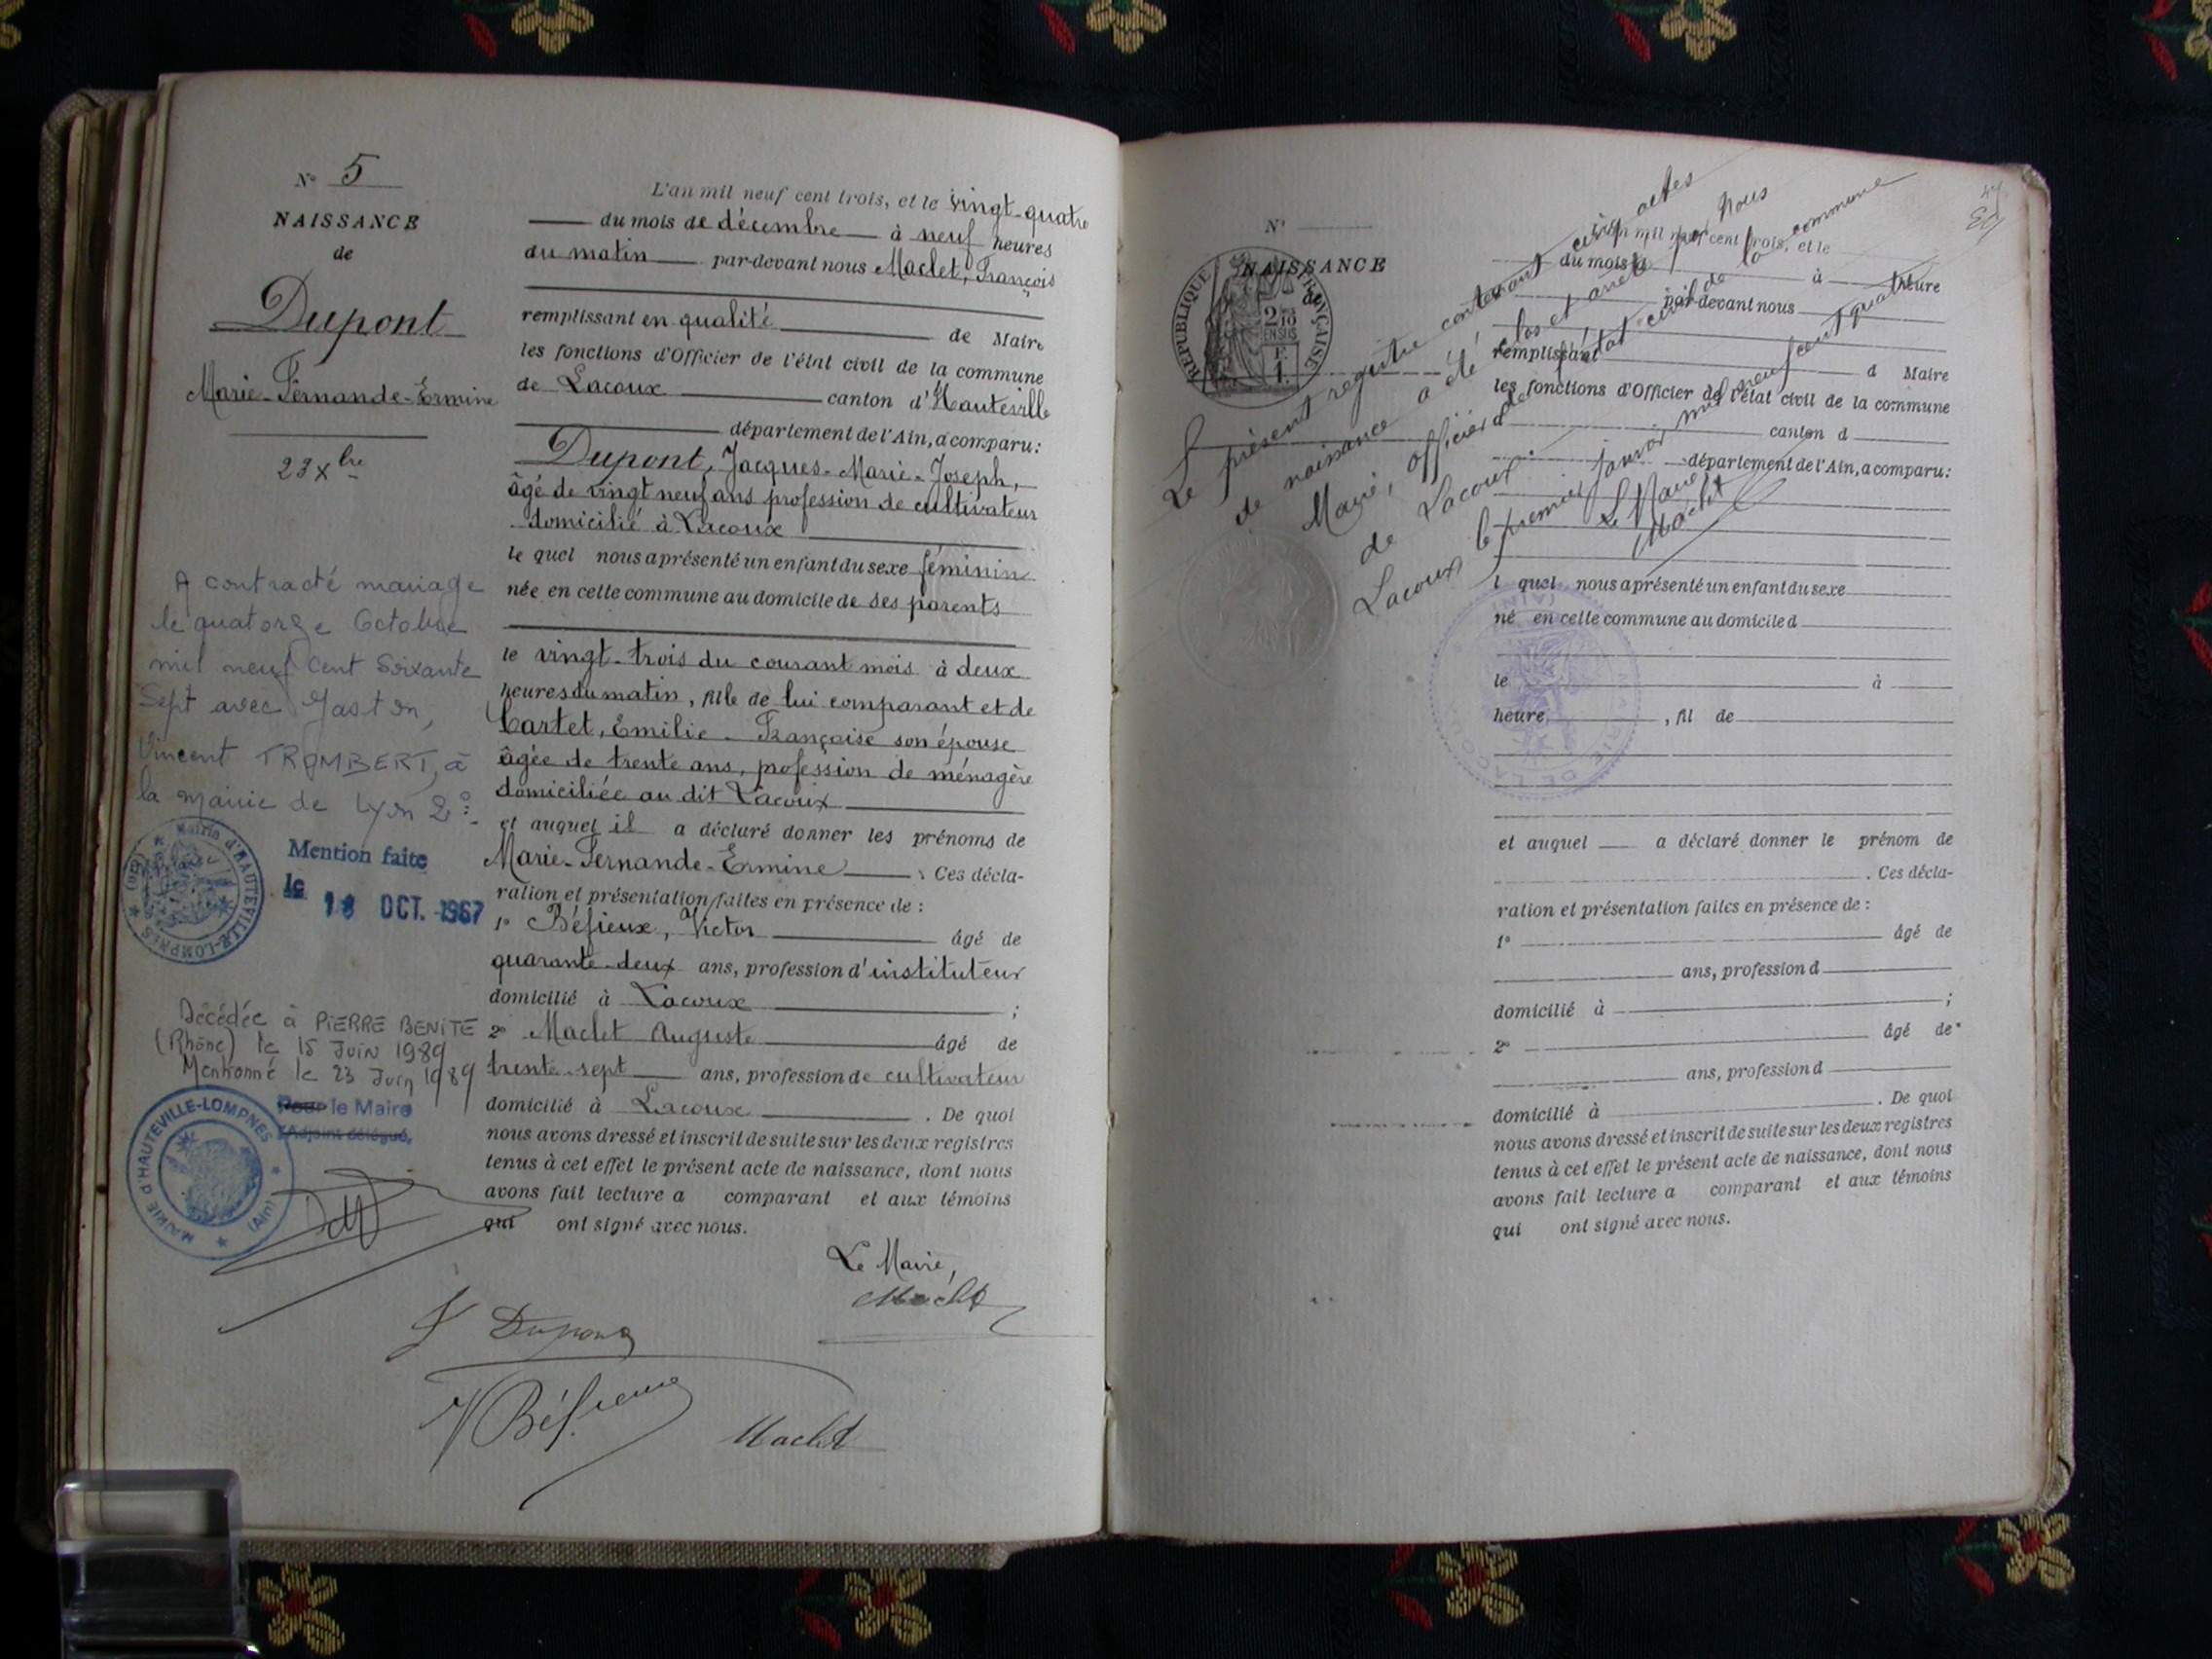 N° 5
NAISSANCE
de
Dupont
Marie-Fernande-Ermine
23 xbre
A contracté mariage
le quatorze Octobre
mil neuf cent Soixante
Sept avec Gaston,
Vincent TROMBERT, à
la mairie de Lyon 2e.
Mairie d'HAUTEVILLE-LOMPNES (Ain)
Mention faite
le 18 OCT. 1967
Décédée à PIERRE BENITE
(Rhône) le 15 Juin 1989
Mentionné le 23 Juin 1989
Pour le Maire
l'Adjoint délégué,
MAIRIE d'HAUTEVILLE-LOMPNES (Ain)
L'an mil neuf cent trois, et le vingt-quatre
du mois de décembre à neuf heures
du matin par-devant nous Maclet, François
remplissant en qualité de Maire
les fonctions d'Officier de l'état civil de la commune
de Lacoux canton d'Hauteville
département de l'Ain, a comparu:
Dupont, Jacques-Marie-Joseph,
âgé de vingt neuf ans profession de cultivateur
domicilié à Lacoux
le quel nous a présenté un enfant du sexe féminin
née en cette commune au domicile de ses parents
le vingt-trois du courant mois à deux
heures du matin, fille de lui comparant et de
Cartet, Emilie-Françoise son épouse
âgée de trente ans, profession de ménagère
domiciliée au dit Lacoux
et auquel il a déclaré donner les prénoms de
Marie-Fernande-Ermine. Ces décla-
ration et présentation faites en présence de :
1° Béfieux, Victor âgé de
quarante-deux ans, profession d'instituteur
domicilié à Lacoux ;
2° Maclet Auguste âgé de
trente-sept ans, profession de cultivateur
domicilié à Lacoux. De quoi
nous avons dressé et inscrit de suite sur les deux registres
tenus à cet effet le présent acte de naissance, dont nous
avons fait lecture a comparant et aux témoins
qui ont signé avec nous.
Le Maire,
Maclet
Dupont
Béfieux
Maclet
N°
NAISSANCE
de
REPUBLIQUE FRANÇAISE
Le présent registre contenant cinq actes
de naissance a été clos et arrêté par Nous
Maire, officier de l'état civil de la commune
de Lacoux
Lacoux le premier janvier mil neuf cent quatre
Le Maire
Maclet
L'an mil neuf cent trois, et le
du mois d à heure
par-devant nous
remplissant d Maire
les fonctions d'Officier de l'état civil de la commune
d canton d
département de l'Ain, a comparu:
l quel nous a présenté un enfant du sexe
né en cette commune au domicile d
MAIRIE DE LACOUX (AIN)
le à
heure , fil de
et auquel a déclaré donner le prénom de
. Ces décla-
ration et présentation faites en présence de :
1° âgé de
ans, profession d
domicilié à ;
2° âgé de
ans, profession d
domicilié à . De quoi
nous avons dressé et inscrit de suite sur les deux registres
tenus à cet effet le présent acte de naissance, dont nous
avons fait lecture a comparant et aux témoins
qui ont signé avec nous.